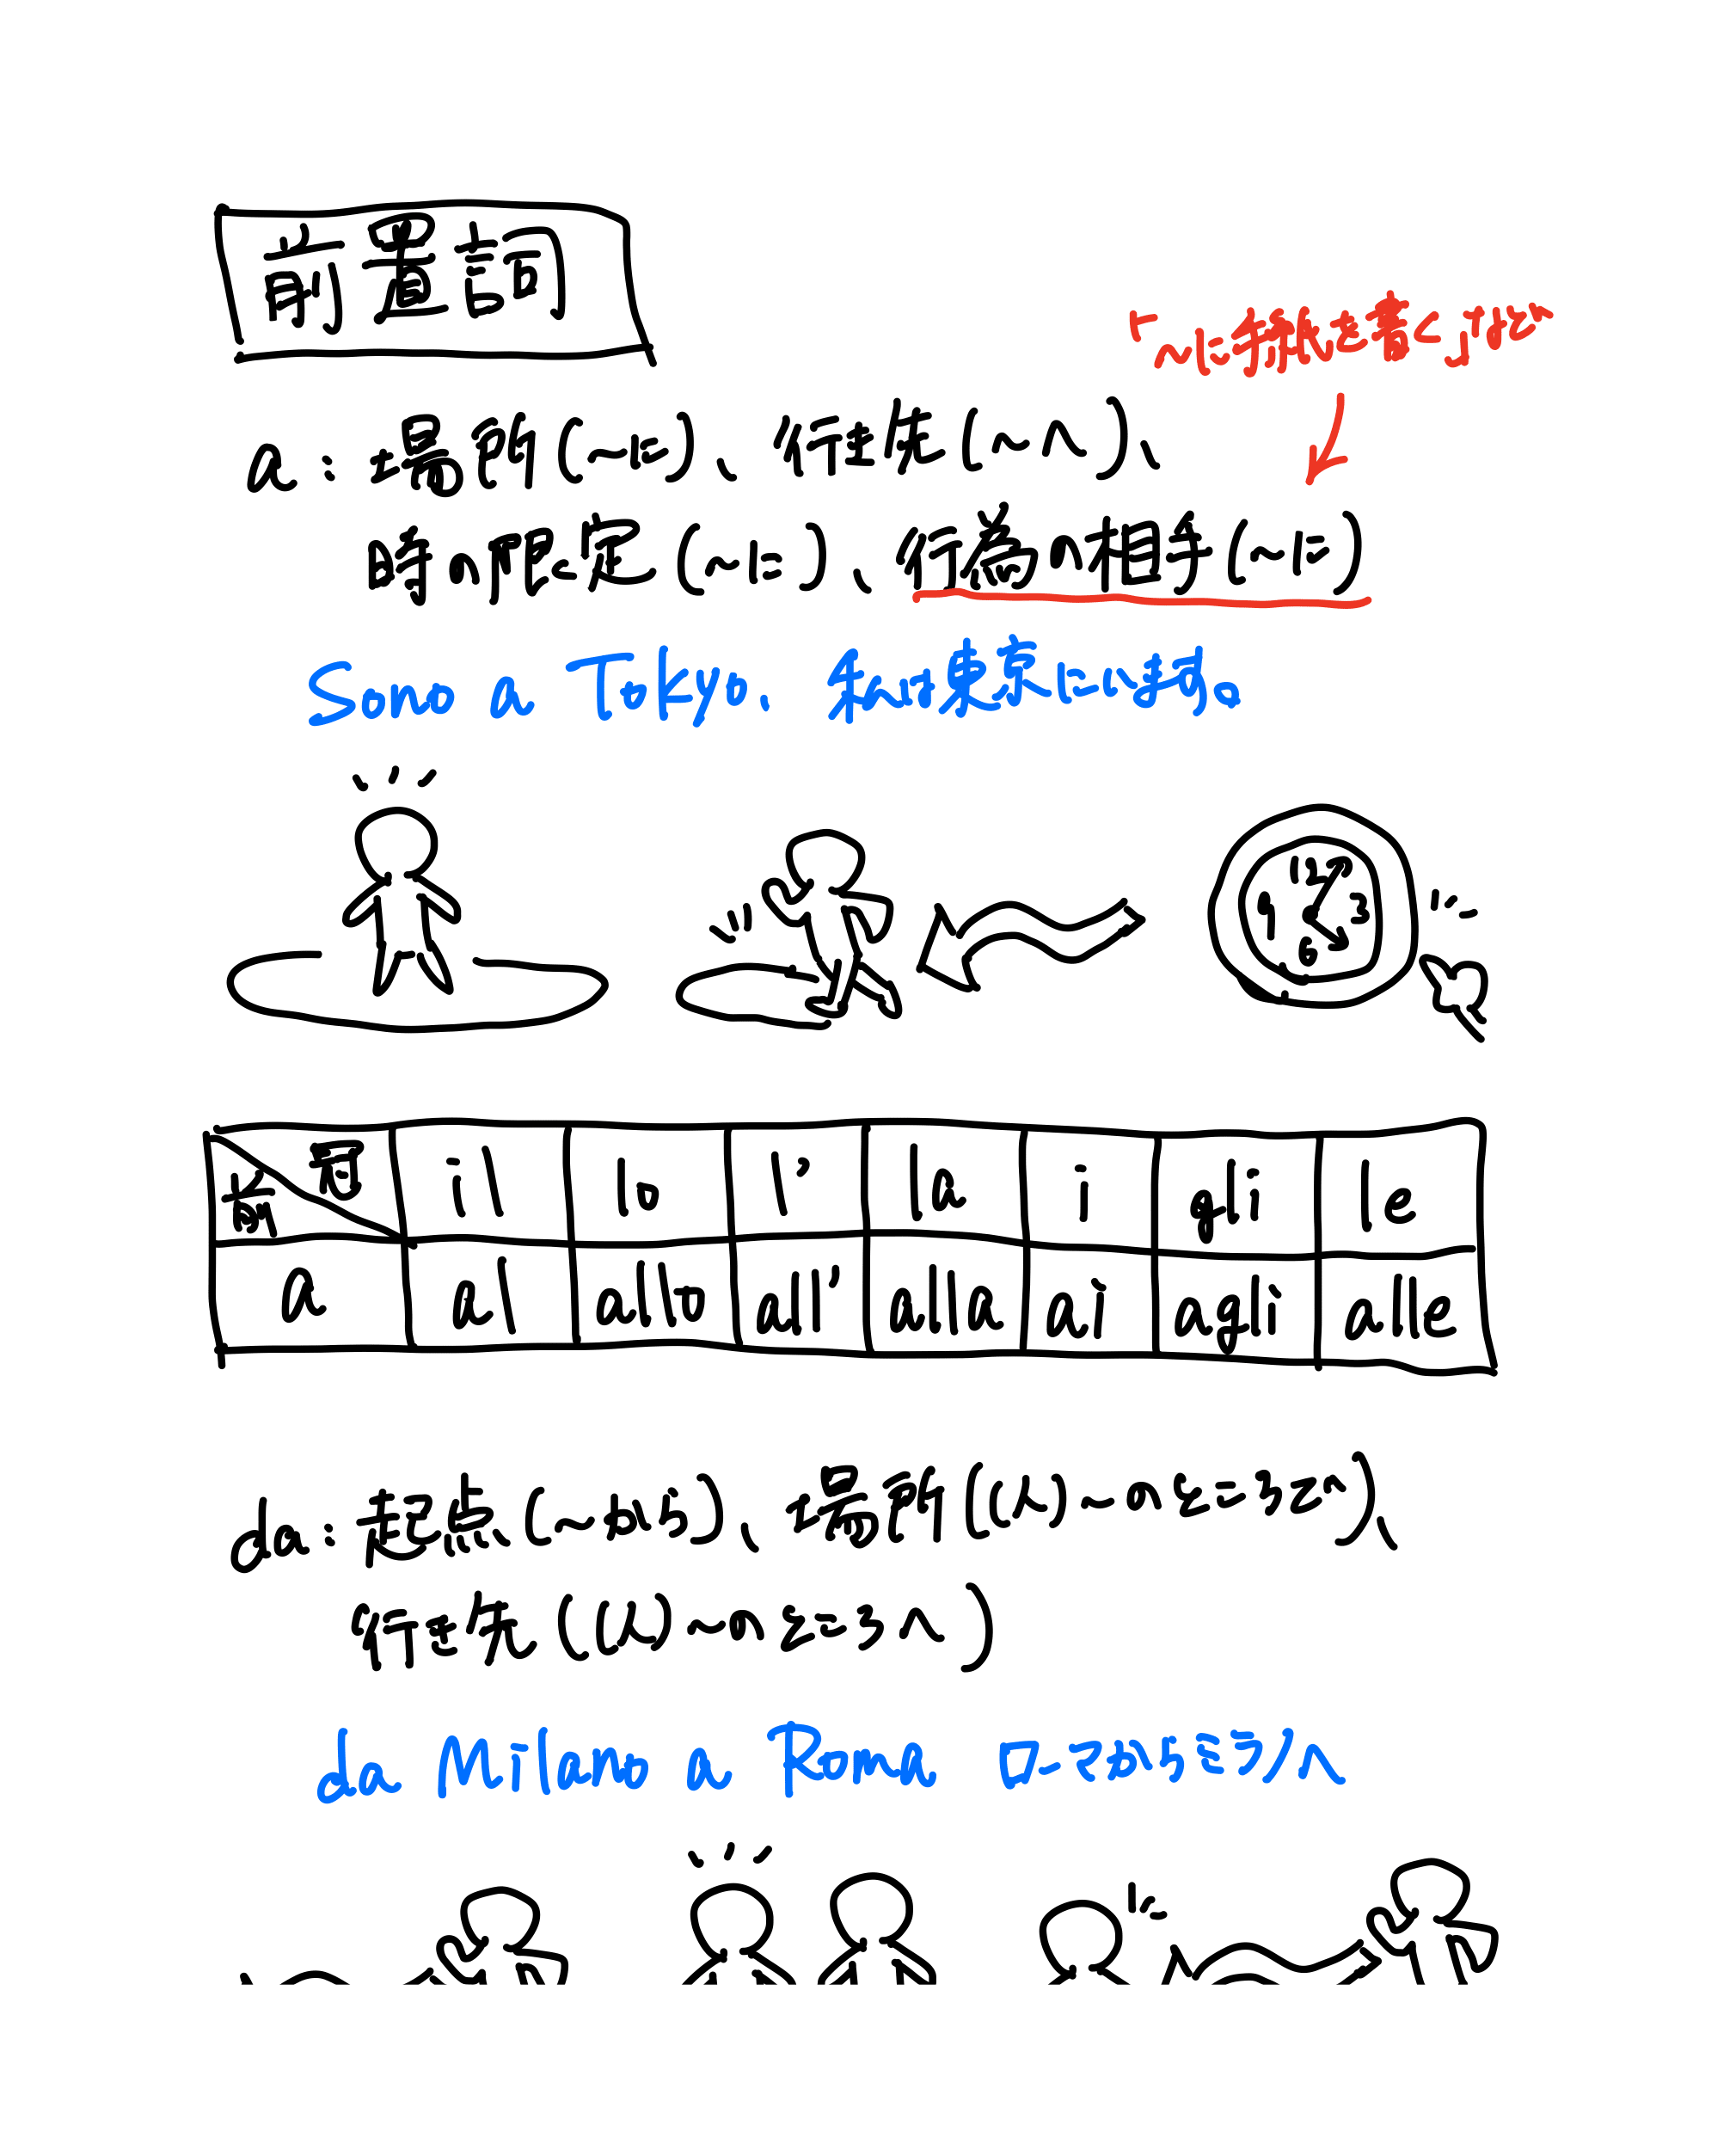 前置詞
「〜に手紙を書く」など
a: 場所(〜に)、行き先(〜へ)、
時の限定(〜に)、行為の相手(〜に)
Sono a Tokyo. 私は東京にいます。
12 3 6 9
冠 il lo l' la i gli le
前
a al allo all' alla ai agli alle
da: 起点(〜から)、場所((人)〜のところで)、
行き先((人)〜のところへ)
da Milano a Roma ローマからミラノへ